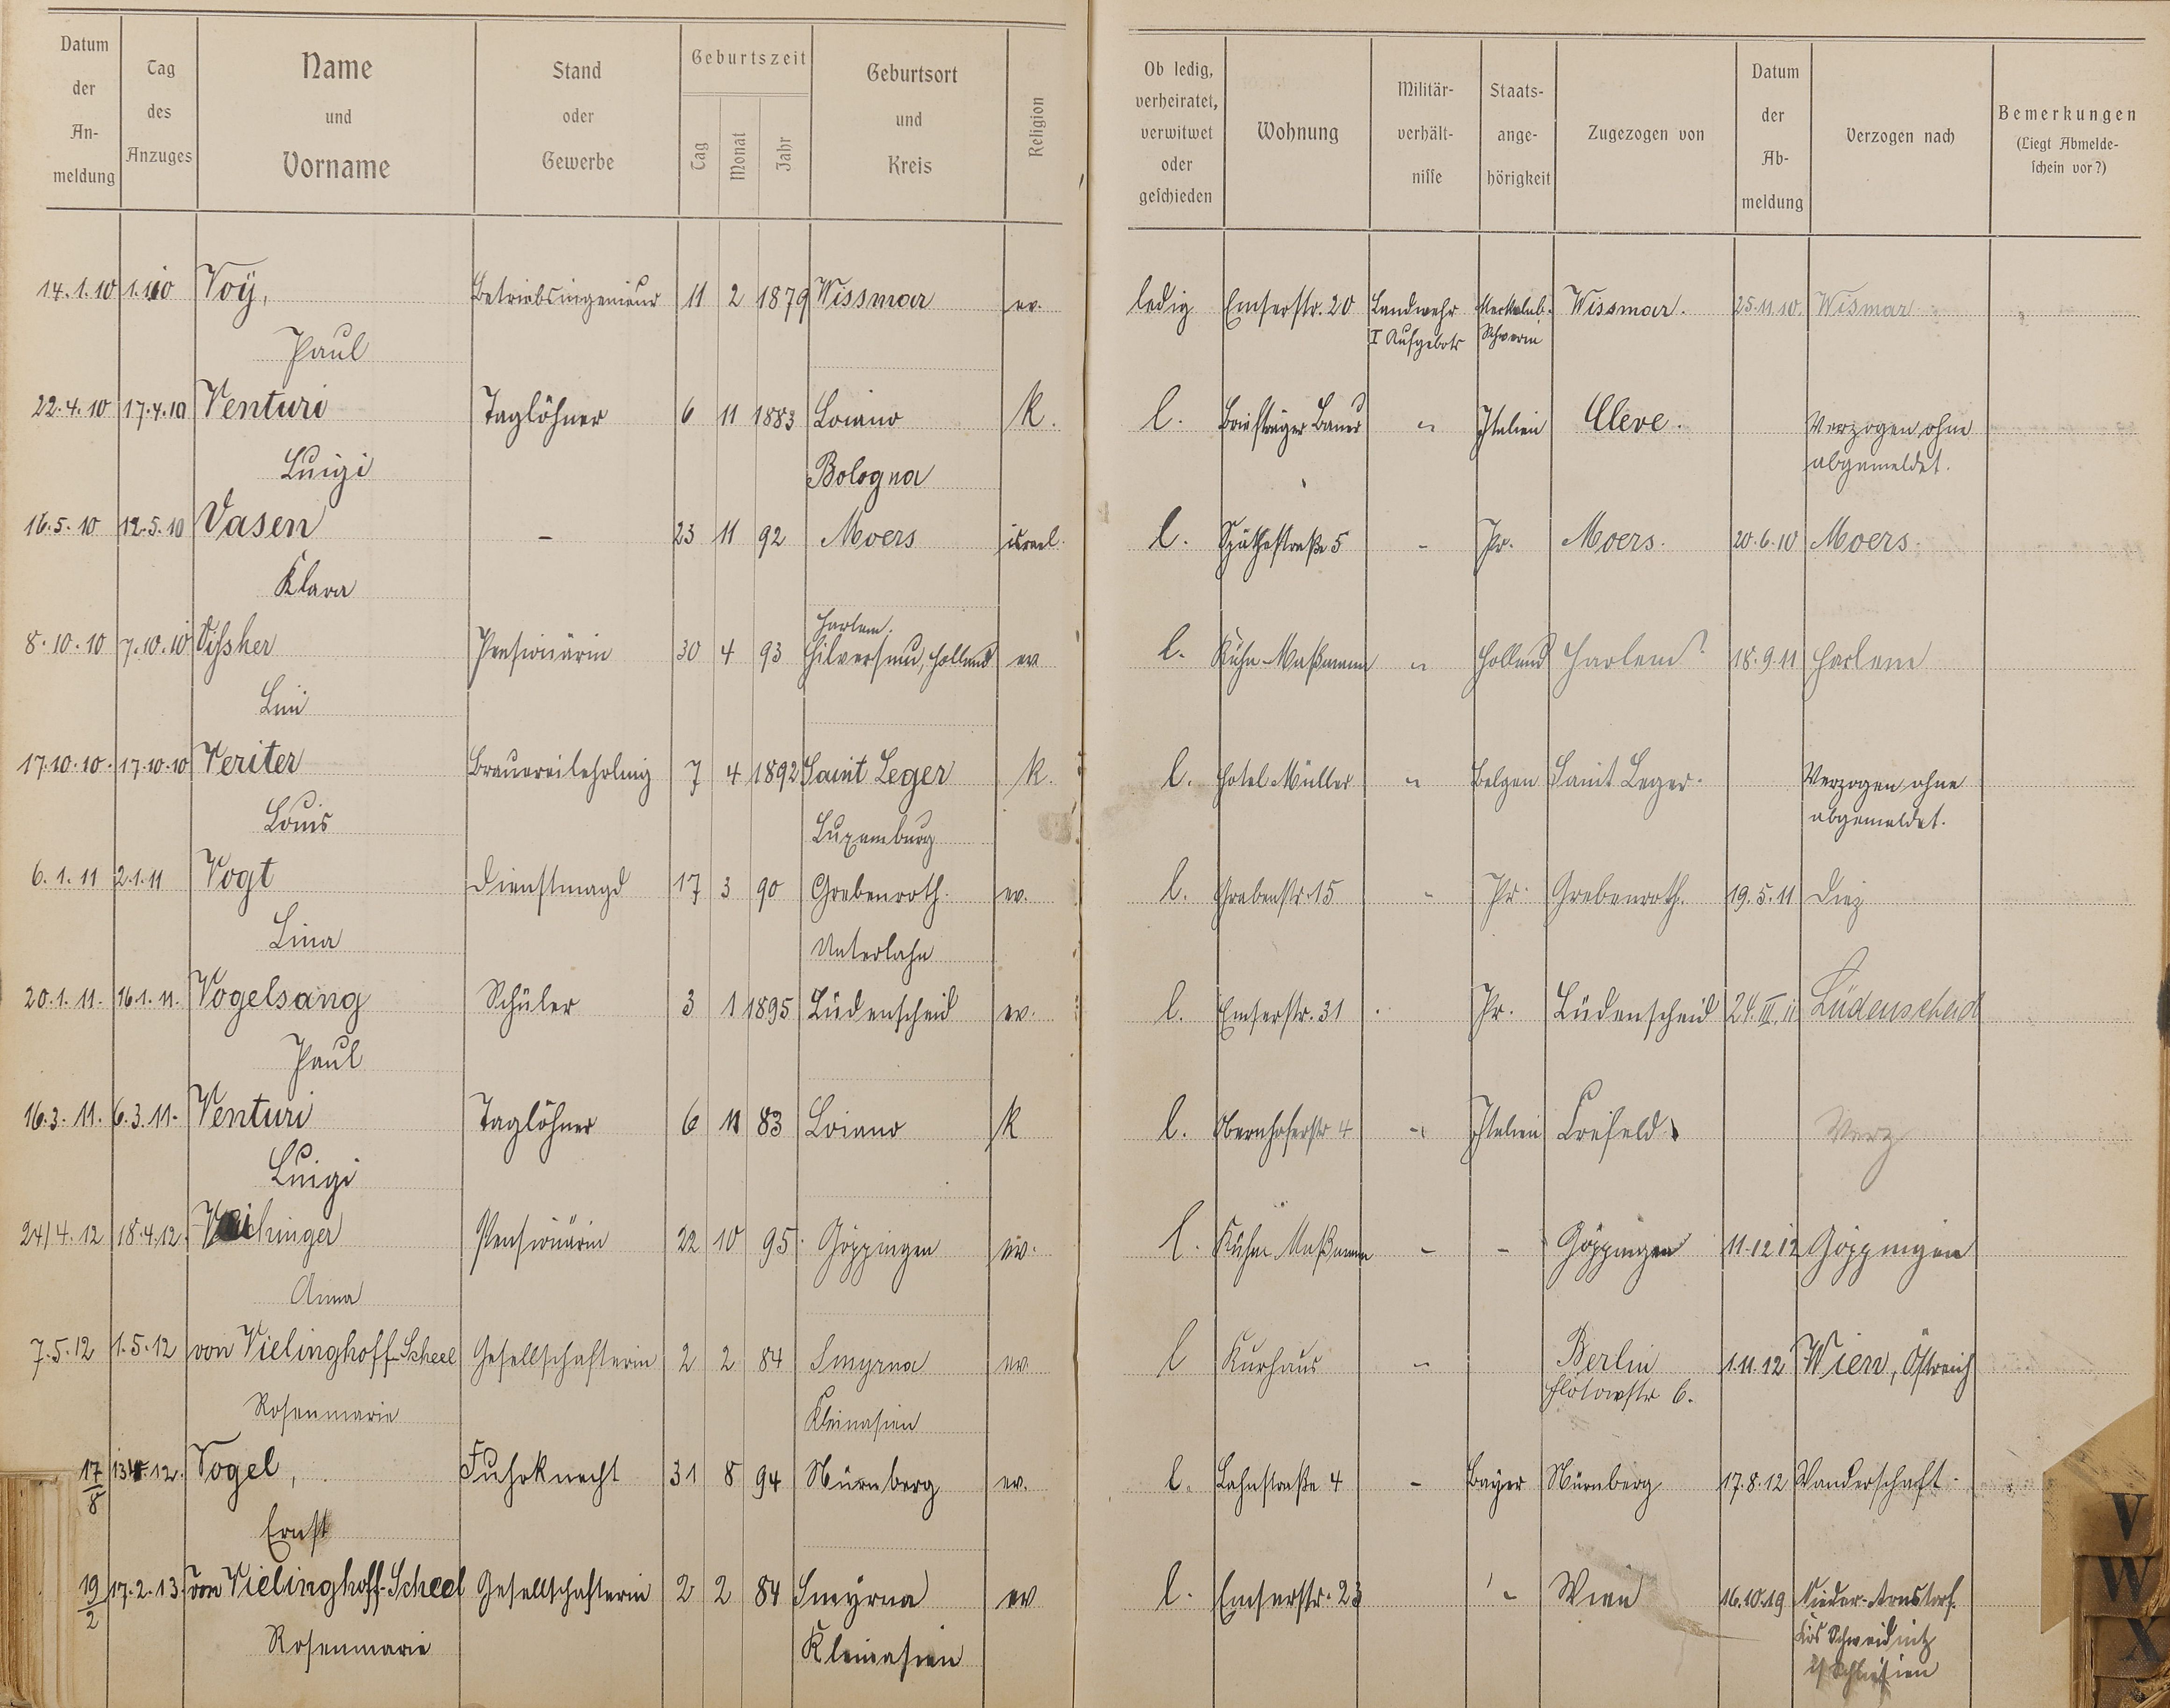 Datum der An- meldung | Tag des Anzuges | Name und Vorname | Stand oder Gewerbe | Geburtszeit Tag Monat Jahr | Geburtsort und Kreis | Religion | Ob ledig, verheiratet, verwitwet oder geschieden | Wohnung | Militär- verhält- nisse | Staats- ange- hörigkeit | Zugezogen von | Datum der Ab- meldung | Verzogen nach | Bemerkungen (Liegt Abmelde- schein vor?)
14.1.10 1.1.10 Voÿ, Betriebsingenieur 11 2 1879 Wissmar ev. ledig Emserstr. 20 Landwehr Mecklenb. Wissmar. 25.11.10. Wismar
Paul I Aufgebots Schwerin
22.4.10 17.4.10 Venturi Taglöhner 6 11 1883 Loiano K. l. Briefträger Bauer " Italien Cleve. Verzogen ohne
Luigi Bologna abgemeldet.
16.5.10 12.5.10 Vasen - 23 11 92 Moers israel. l. Späthestraße 5 - Pr. Moers. 20.6.10 Moers.
Klara
Harlem.
8.10.10 7.10.10 Vissher Pensionärin 30 4 93 Hilversum, Holland ev l. Kuhn-Maßmann " Holland Harlem? 18.9.11 Harlem
Lini
17.10.10. 17.10.10 Veriter Brauereilehrling 7 4 1892 Saint Leger K. l. Hotel Müller " Belgen Saint Leger. Verzogen ohne
Louis Luxemburg abgemeldet.
6.1.11 2.1.11 Vogt Dienstmagd 17 3 90 Grebenroth. ev. l. Grabenstr. 15 " Pr. Grebenroth. 19.5.11 Diez
Lina Unterlahn
20.1.11. 16.1.11. Vogelsang Schüler 3 1 1895 Lüdenscheid ev. l. Emserstr. 31 . Pr. Lüdenscheid 24.III.11 Lüdenscheid
Paul
16.3.11. 6.3.11. Venturi Taglöhner 6 11 83 Loiano K l. Obernhoferstr 4 " Italien Crefeld Verz
Luigi
24/4.12 18.4.12. Vaihinger Pensionärin 22 10 95. Göppingen ev. l. Kuhn Maßmann - - Göppingen 11.12.12 Göppingen
Anna
7.5.12 1.5.12 von Vielinghoff-Scheel Gesellschafterin 2 2 84 Smyrna ev l Kurhaus " Berlin 1.11.12 Wien, Östreich
Rosenmarie Kleinasien Flotowstr 6.
17/8 12. Vogel, Fuhrknecht 31 8 94 Nürnberg ev. l. Lahnstraße 4 - Bayer Nürnberg 17.8.12 Wanderschaft
Ernst
19/2 17.2.13. von Vielinghoff-Scheel Gesellschafterin 2 2 84 Smyrna ev l. Emserstr. 23 " Wien 16.10.19 Nieder-Arnsdorf.
Rosenmarie Kleinasien Krs Schweidnitz
i/ Schlesien
V
W
X